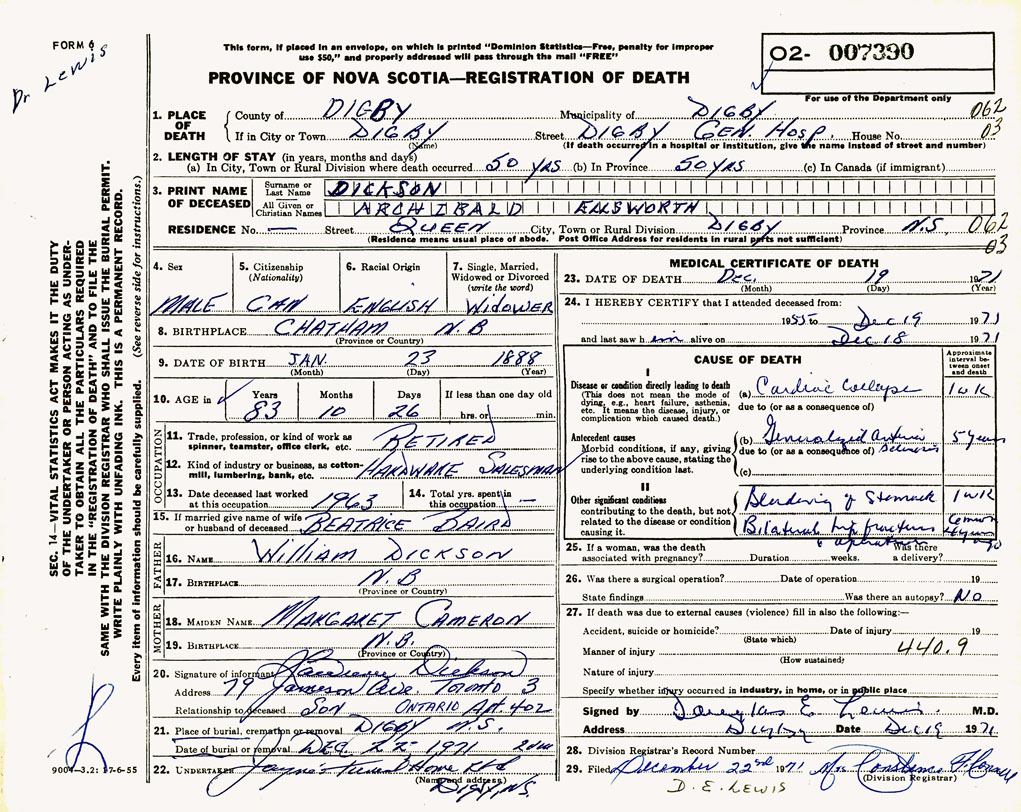 FORM 6
Dr Lewis
This form, if placed in an envelope, on which is printed "Dominion Statistics—Free, penalty for improper
use $50," and properly addressed will pass through the mail "FREE"
PROVINCE OF NOVA SCOTIA—REGISTRATION OF DEATH
02- 007390
For use of the Department only
1. PLACE OF DEATH
County of DIGBY Municipality of DIGBY 062
If in City or Town DIGBY Street DIGBY GEN. HOSP. House No. 03
(Name) (If death occurred in a hospital or institution, give the name instead of street and number)
2. LENGTH OF STAY (in years, months and days)
(a) In City, Town or Rural Division where death occurred 50 YRS (b) In Province 50 YRS (c) In Canada (if immigrant)
3. PRINT NAME OF DECEASED
Surname or Last Name DICKSON
All Given or Christian Names ARCHIBALD ELLSWORTH
RESIDENCE No. — Street QUEEN City, Town or Rural Division DIGBY Province N.S. 062
(Residence means usual place of abode. Post Office Address for residents in rural parts not sufficient) 03
4. Sex
MALE
5. Citizenship (Nationality)
CAN
6. Racial Origin
ENGLISH
7. Single, Married, Widowed or Divorced (write the word)
WIDOWER
8. BIRTHPLACE CHATHAM N.B
(Province or Country)
9. DATE OF BIRTH JAN. 23 1888
(Month) (Day) (Year)
10. AGE in Years Months Days If less than one day old
83 10 26 hrs. or min.
OCCUPATION
11. Trade, profession, or kind of work as spinner, teamster, office clerk, etc. RETIRED
12. Kind of industry or business, as cotton-mill, lumbering, bank, etc. HARDWARE SALESMAN
13. Date deceased last worked at this occupation 1963
14. Total yrs. spent in this occupation —
15. If married give name of wife or husband of deceased BEATRICE BAIRD
FATHER
16. NAME WILLIAM DICKSON
17. BIRTHPLACE N.B
(Province or Country)
MOTHER
18. MAIDEN NAME MARGARET CAMERON
19. BIRTHPLACE N.B.
(Province or Country)
20. Signature of informant Dickson
Address 79 Jameson Ave Toronto 3
Relationship to deceased SON ONTARIO Apt 402
21. Place of burial, cremation or removal DIGBY N.S.
Date of burial or removal DEC 22 1971
22. UNDERTAKER Jayne's Funeral Home Ltd
(Name and address) Digby, N.S.
MEDICAL CERTIFICATE OF DEATH
23. DATE OF DEATH Dec. 19 1971
(Month) (Day) (Year)
24. I HEREBY CERTIFY that I attended deceased from:
1955 to Dec 19 1971
and last saw him alive on Dec 18 1971
CAUSE OF DEATH
Approximate interval between onset and death
I
Disease or condition directly leading to death
(This does not mean the mode of dying, e.g., heart failure, asthenia, etc. It means the disease, injury, or complication which caused death.)
(a) Cardiac Collapse 1 wk
due to (or as a consequence of)
Antecedent causes
Morbid conditions, if any, giving rise to the above cause, stating the underlying condition last.
(b) Generalized Arterio Sclerosis 5 years
due to (or as a consequence of)
(c)
II
Other significant conditions
contributing to the death, but not related to the disease or condition causing it.
Bleeding of Stomach 1 wk
Bilateral hip fractures
25. If a woman, was the death associated with pregnancy? Duration weeks. Was there a delivery?
26. Was there a surgical operation? Date of operation 19
State findings Was there an autopsy? NO
27. If death was due to external causes (violence) fill in also the following:—
Accident, suicide or homicide? Date of injury 19
(State which)
Manner of injury 440.9
(How sustained)
Nature of injury
Specify whether injury occurred in industry, in home, or in public place
Signed by Douglas E Lewis M.D.
Address Digby Date Dec 19 1971
28. Division Registrar's Record Number
29. Filed December 22nd 1971 Mrs Constance
(Division Registrar)
D. E. LEWIS
SEC. 14—VITAL STATISTICS ACT MAKES IT THE DUTY
OF THE UNDERTAKER OR PERSON ACTING AS UNDER-
TAKER TO OBTAIN ALL THE PARTICULARS REQUIRED
IN THE "REGISTRATION OF DEATH" AND TO FILE THE
SAME WITH THE DIVISION REGISTRAR WHO SHALL ISSUE THE BURIAL PERMIT.
WRITE PLAINLY WITH UNFADING INK. THIS IS A PERMANENT RECORD.
Every item of information should be carefully supplied. (See reverse side for instructions.)
9004-3.2: 17-6-55